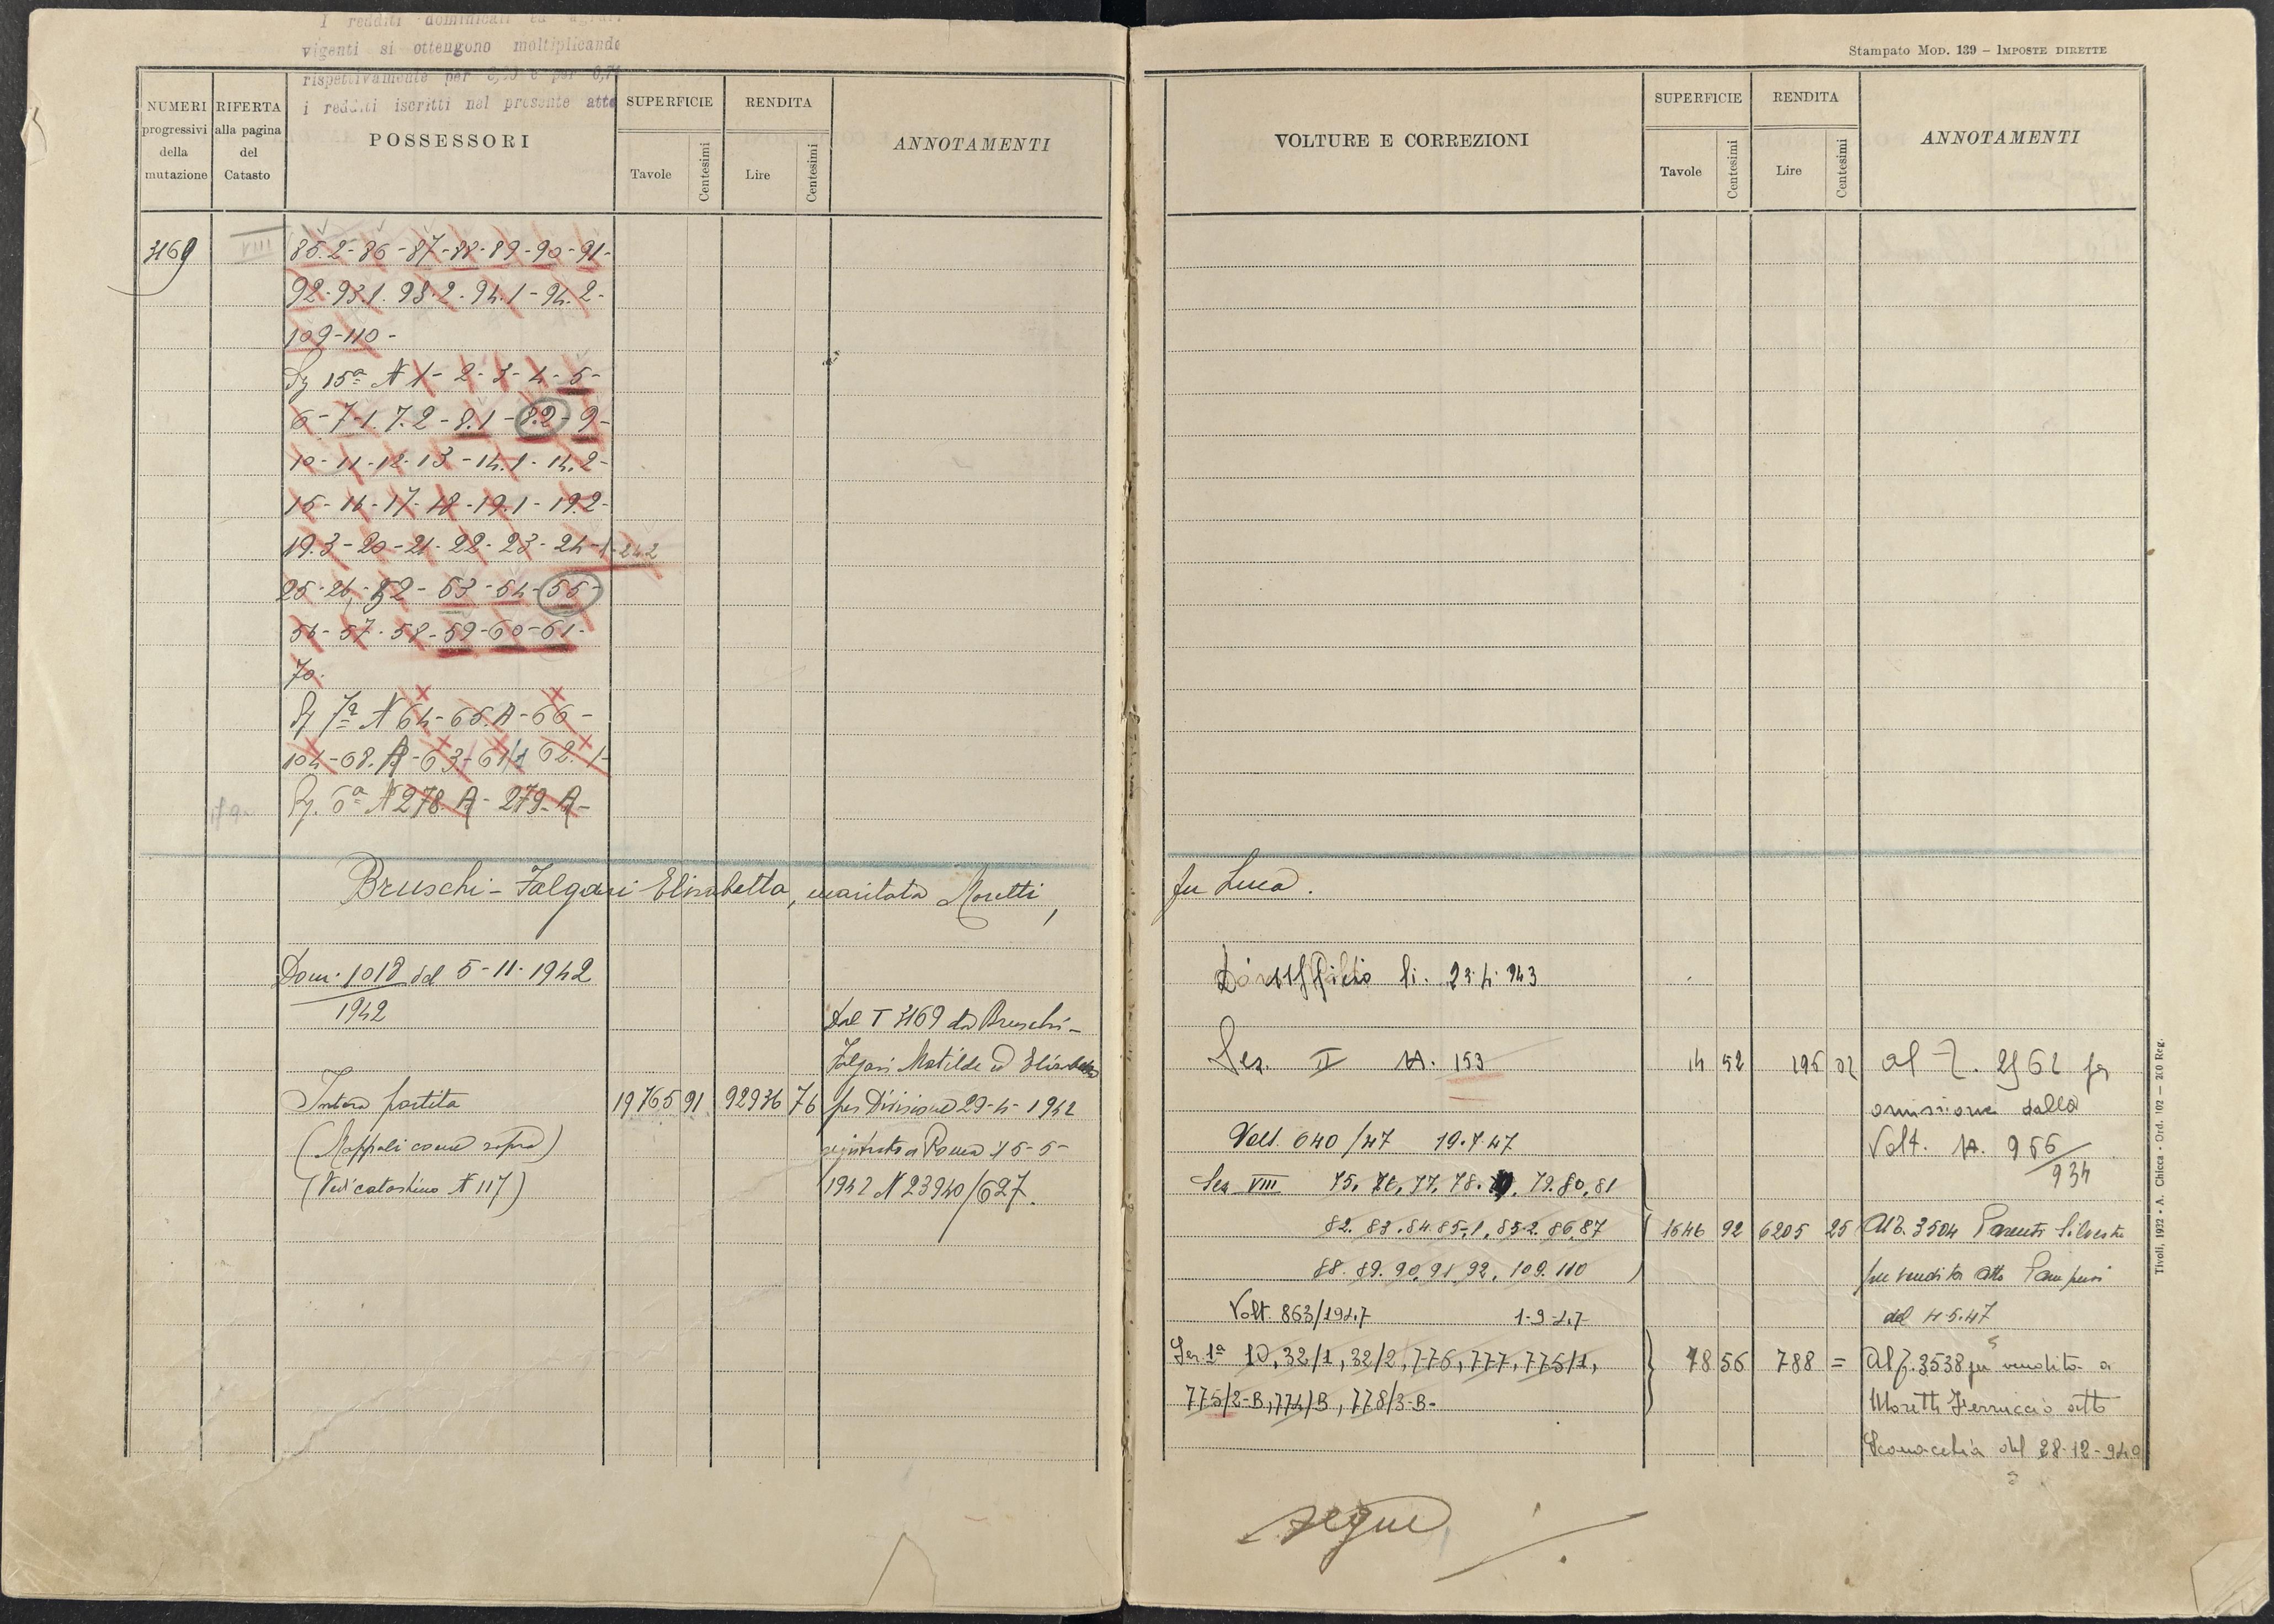 I redditi dominicali ed agrar.
vigenti si ottengono moltiplicando
rispettivamente per e per
i redditi iscritti nel presente atto
NUMERI
progressivi
della
mutazione
RIFERTA
alla pagina
del
Catasto
POSSESSORI
SUPERFICIE
Tavole
Centesimi
RENDITA
Lire
Centesimi
ANNOTAMENTI
3169
VIII
85.2-86-87-88-89-90-91-
92-93.1. 93.2-94.1-94.2-
109-110-
Sez 15ª N 1-2-3-4-5-
6-7-1. 7.2-8.1-8.2-9-
10-11-12-13-14.1-14.2-
15-16-17-18-19.1-19.2-
19.3-20-21-22-23-24-1-24.2
25-26-52-53-54-55-
56-57-58-59-60-61-
70.
Sez 7ª N 64-65.A-66-
104-68.A-63-61/1 62.1-
Sez. 6ª N 278.A-279-A-
Bruschi-Falgari Elisabetta, maritata Moretti,
Dom. 1018 del 5-11-1942
1942
Intera partita
(Mappali come sopra)
(Vedi catastino N 117)
19765 91 92936 76
Dal T 3169 da Bruschi-
Falgari Matilde ed Elisabetta
per Divisione 29-4-1942
registrato a Roma 15-5-
1942 N 23940/627.
Stampato MOD. 139 - IMPOSTE DIRETTE
VOLTURE E CORREZIONI
SUPERFICIE
Tavole
Centesimi
RENDITA
Lire
Centesimi
ANNOTAMENTI
fu Luca.
li. 23.4.943
Sez. II N. 153 14 52 196 02 al T. 2562 per
omissione dalla
Volt. N. 956/934
Volt. 640/47 19.7.47
Sez VIII 75. 76. 77. 78. 79. 80. 81
82. 83. 84. 85-1. 85-2. 86. 87 1646 92 6205 25 Al T. 3504 Parenti Silvestro
88. 89. 90. 91. 92. 109. 110 per vendita atto
Volt. 863/1947 1-9-47 del 4.5.47
Sez 1ª 10, 32/1, 32/2, 776, 777, 775/1, 78 56 788 = Al T. 3538 per vendita a
775/2-B, 774/B, 778/3-B- Moretti Ferruccio atto
del 28-12-940
segue
Tivoli, 1922 - A. Chicca - Ord. 102 - 200 Reg.